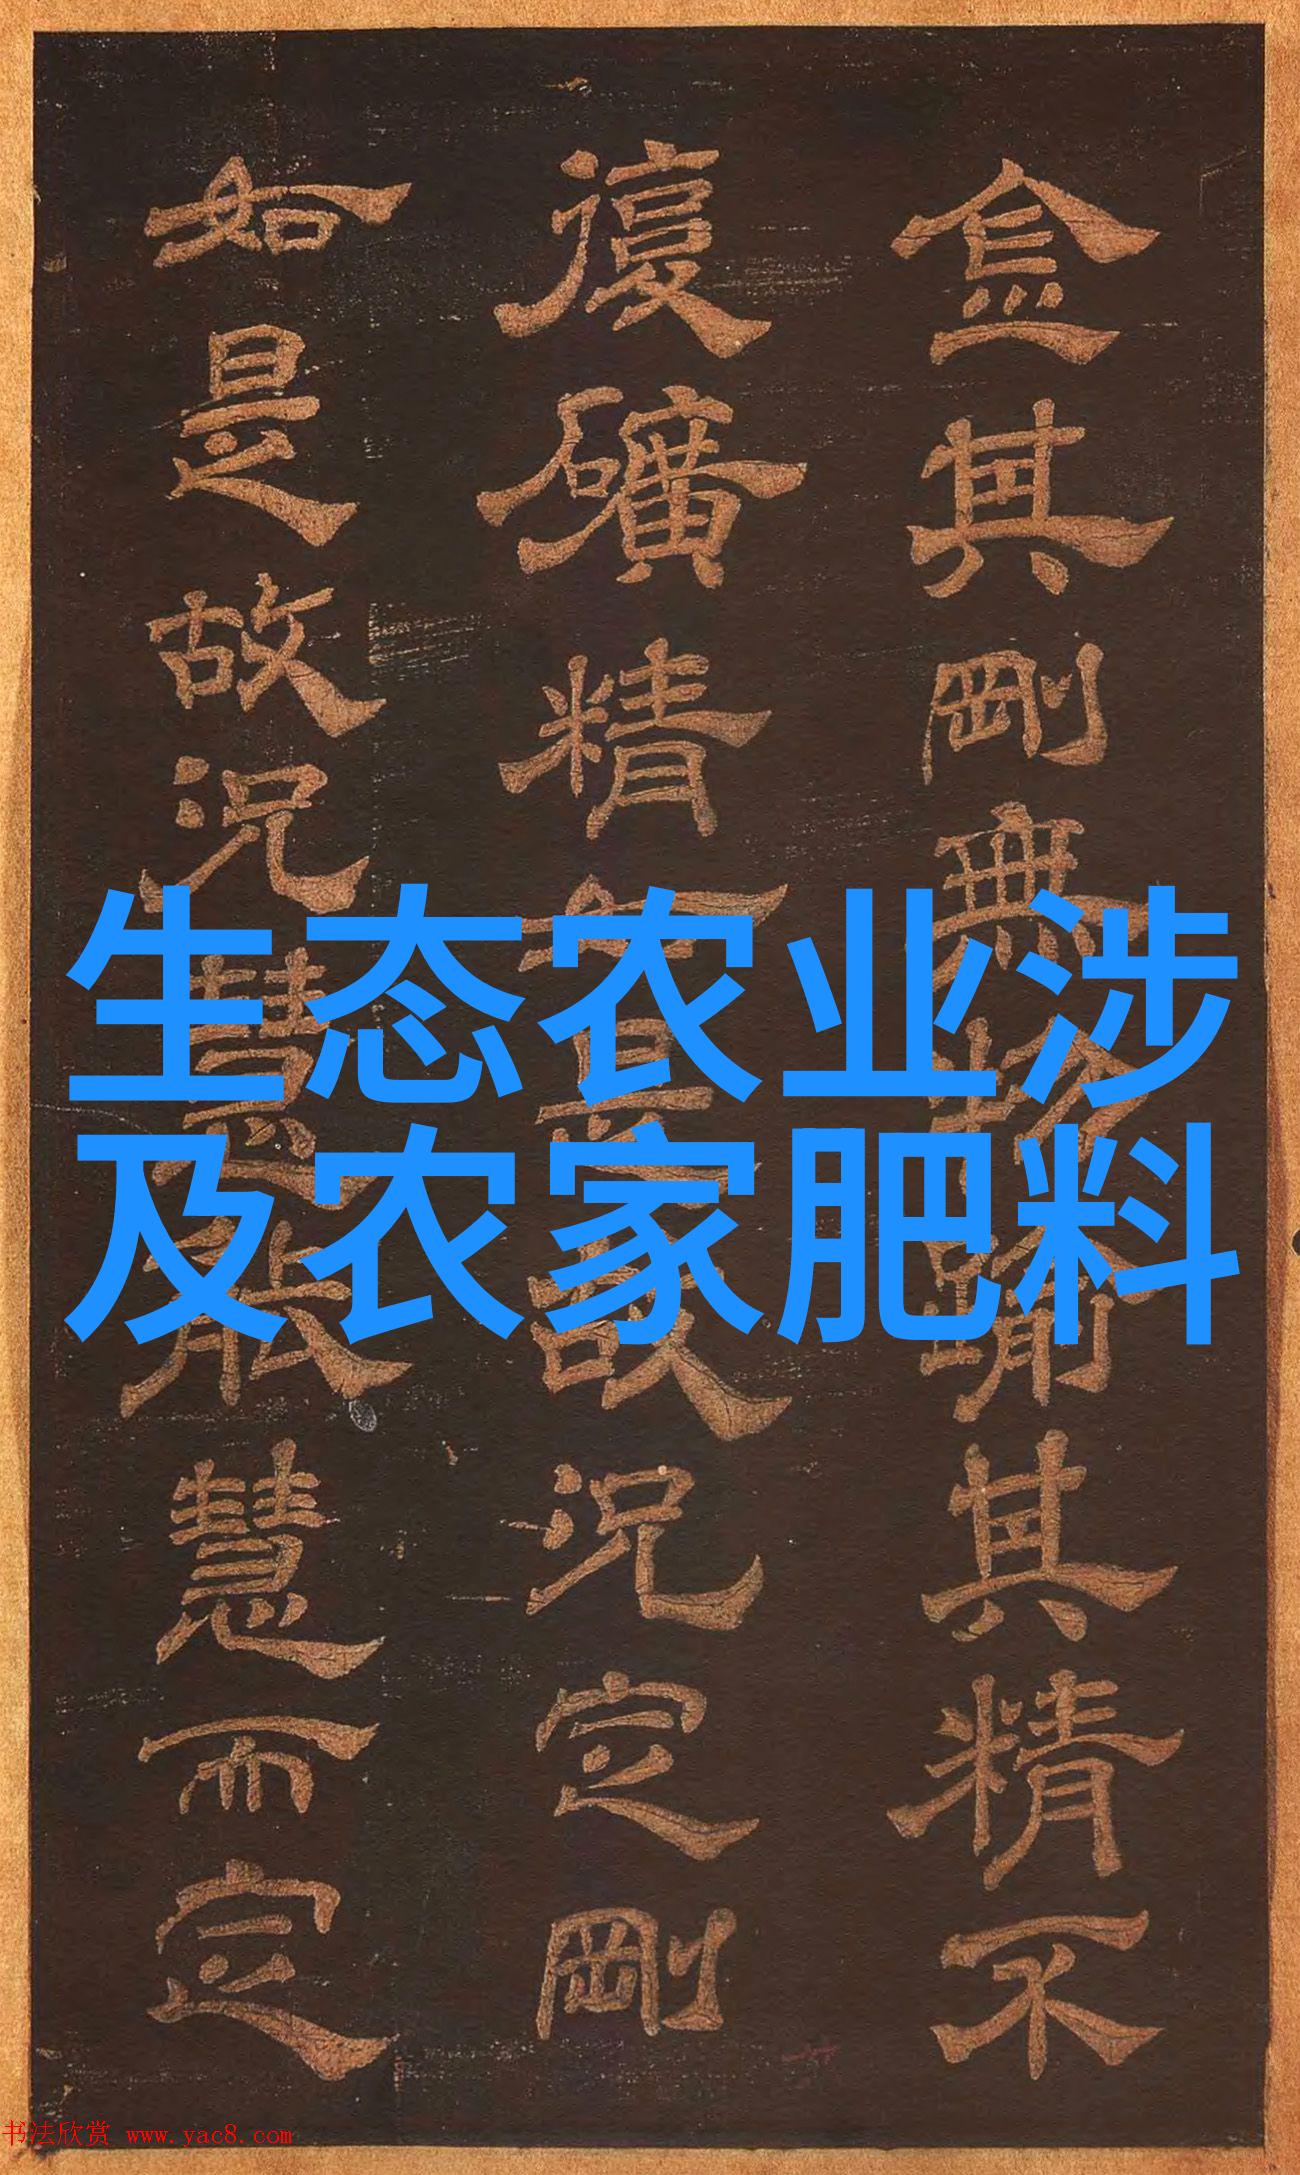 生态农业涉
及农家肥料
金其剛無其精不
復礦精如是故況定剛
如是故況慧般慧而定
书法欣赏 www.yac8.com